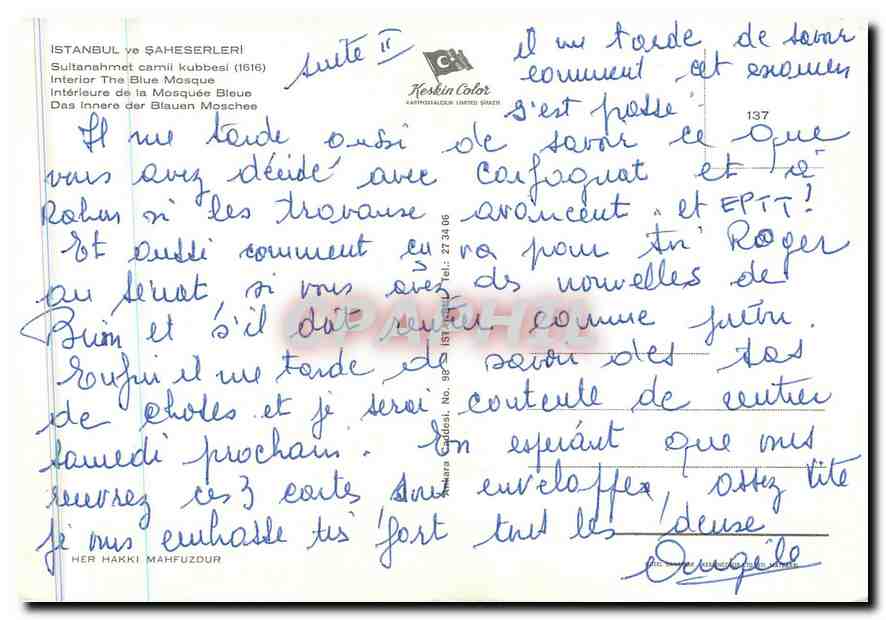 ISTANBUL ve ŞAHESERLERİ
Sultanahmet camii kubbesi (1616)
Interior The Blue Mosque
Intérieure de la Mosquée Bleue
Das Innere der Blauen Moschee
suite II
Keskin Color
KARTPOSTALCILIK LIMITED ŞİRKETİ
il me tarde de savoir
comment cet examen
s'est passé.
137
Il me tarde aussi de savoir ce que
vous avez décidé avec et à
si les travaux avancent et EPTT!
Et aussi comment ça va pour Roger
au Sénat, si vous avez des nouvelles de
et s'il doit rentrer comme prévu.
Enfin il me tarde de savoir des tas
de choses et je serai contente de rentrer
samedi prochain. En espérant que vous
recevrez ces 3 cartes sous enveloppe, assez vite
je vous embrasse très fort tous les deux
Angèle
Ankara Caddesi, No. 98 İSTANBUL Tel.: 27 34 06
HER HAKKI MAHFUZDUR
CPAPHIL